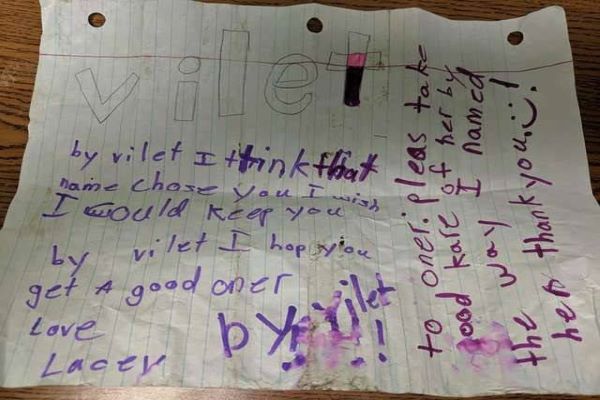 vilet
by vilet I think that
name chose you I wish
I would keep you
by vilet I hop you
get A good oner
Love
Lacey
by vilet
!!!!
to oner: pleas take
good kare of her by
the way I named
her thankyou :)!